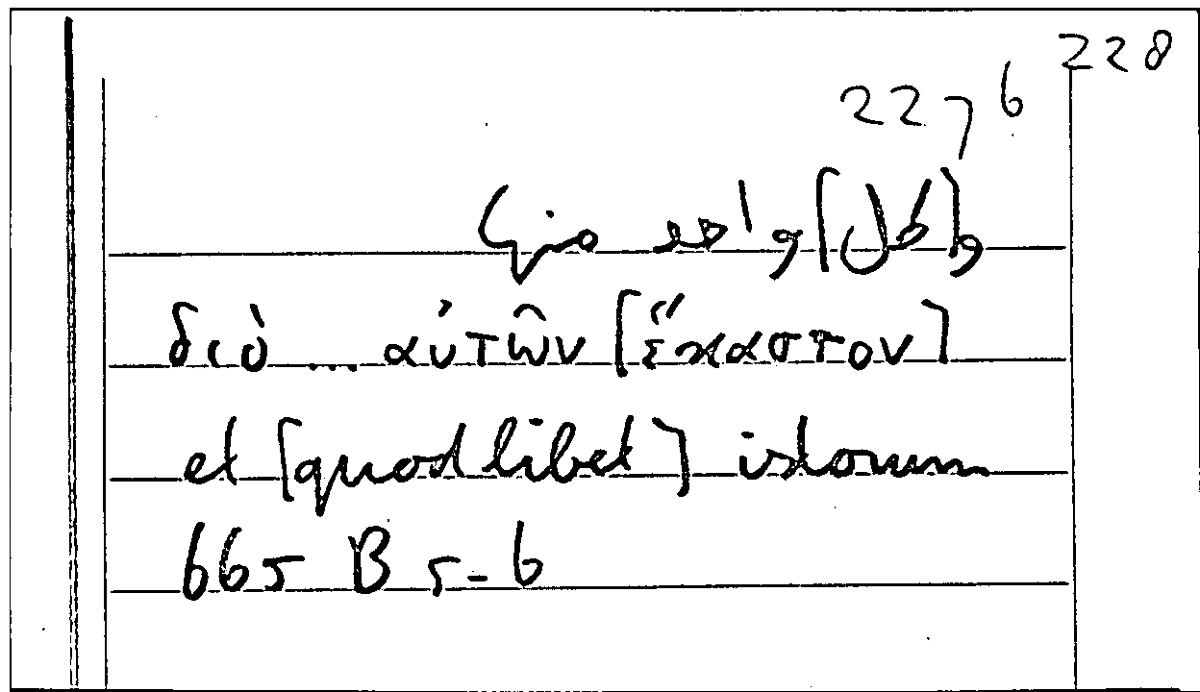 228
227 6
و[كل] واحد منها
διὸ ... αὐτῶν [ἕκαστον]
et [quodlibet] istorum
665 B 5-6